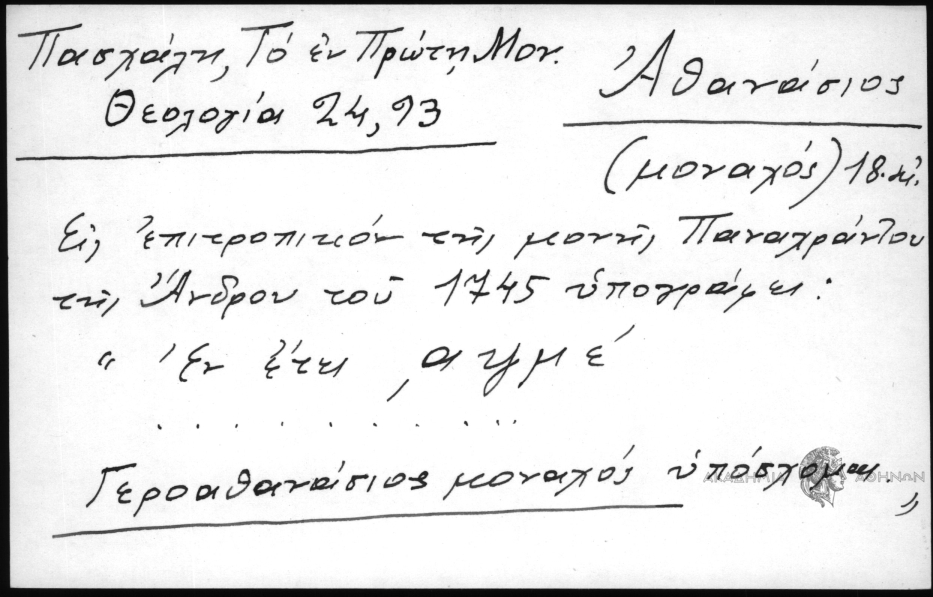 Πασχάλη, Τό ἐν Πρώτῃ Μον.
Θεολογία 24, 93
Ἀθανάσιος
(μοναχός) 18. αἰ.
Εἰς ἐπιτροπικόν τῆς μονῆς Παναχράντου
τῆς Ἄνδρου τοῦ 1745 ὑπογράφει:
“ Ἐν ἔτει ͵αψμέ
. . . . . . . . . . .
Γεροαθανάσιος μοναχός ὑπόσχομαι.”
ΑΚΑΔΗΜΙΑ ΑΘΗΝΩΝ